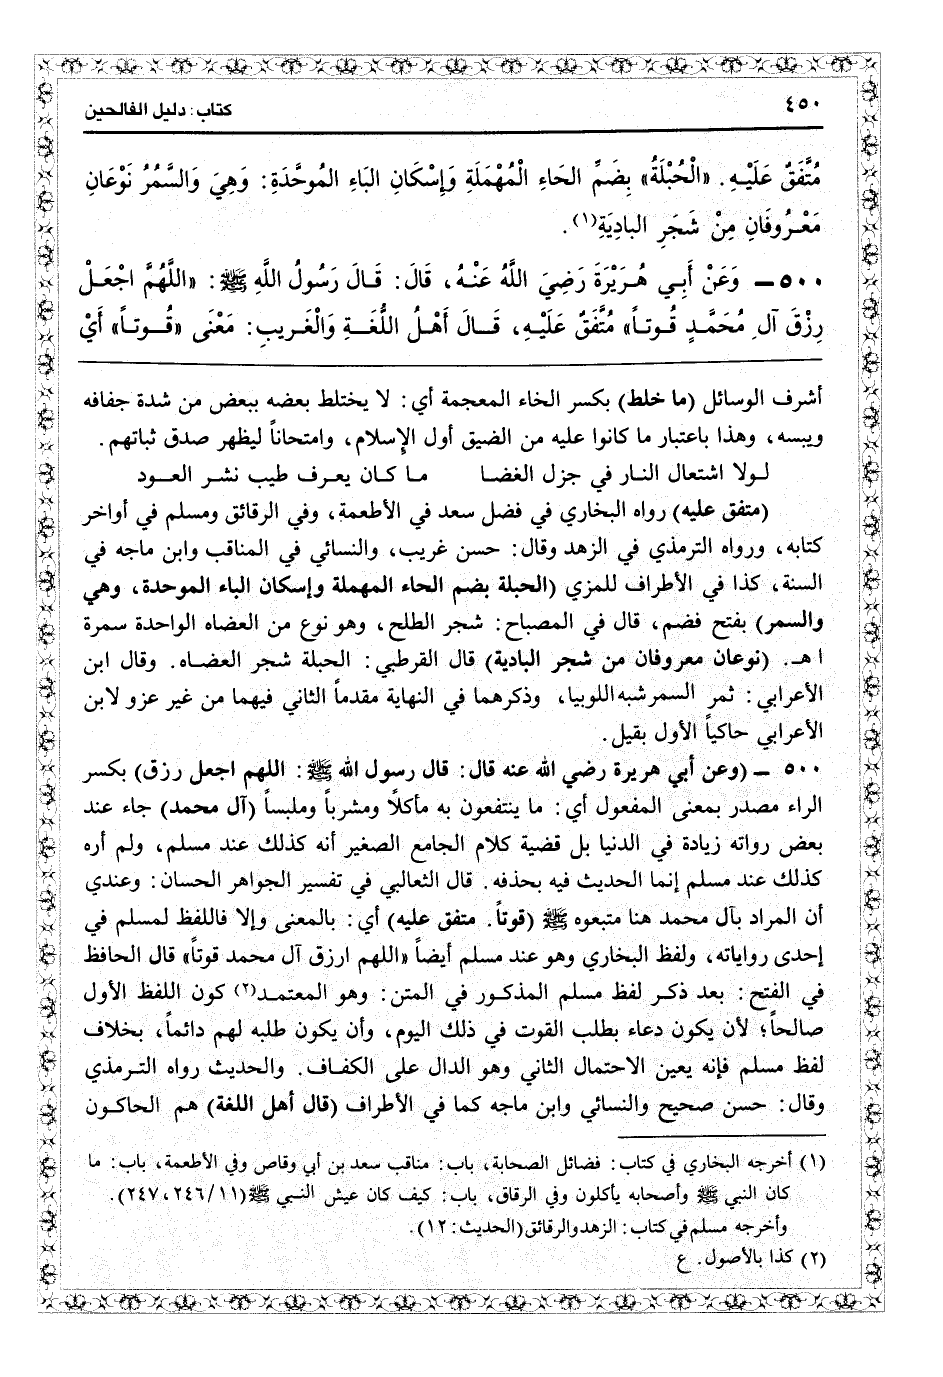 ٤٥٠
كتاب: دليل الفالحين
مُتَّفَقٌ عَلَيْهِ. «الْحُبْلَةُ» بِضَمِّ الحَاءِ الْمُهْمَلَةِ وَإِسْكَانِ البَاءِ المُوحَّدَةِ: وَهِيَ وَالسَّمُرُ نَوْعَانِ
مَعْرُوفَانِ مِنْ شَجَرِ البادِيَةِ(١).
٥٠٠ ــ وَعَنْ أَبِي هُرَيْرَةَ رَضِيَ اللَّهُ عَنْهُ، قَالَ: قَالَ رَسُولُ اللَّهِ ﷺ: «اللَّهُمَّ اجْعَلْ
رِزْقَ آلِ مُحَمَّدٍ قُوتاً» مُتَّفَقٌ عَلَيْهِ، قَالَ أَهْلُ اللُّغَةِ وَالْغَرِيبِ: مَعْنَى «قُوتاً» أَيْ
أشرف الوسائل (ما خلط) بكسر الخاء المعجمة أي: لا يختلط بعضه ببعض من شدة جفافه
ويبسه، وهذا باعتبار ما كانوا عليه من الضيق أول الإسلام، وامتحاناً ليظهر صدق ثباتهم.
لولا اشتعال النار في جزل الغضا ما كان يعرف طيب نشر العود
(متفق عليه) رواه البخاري في فضل سعد في الأطعمة، وفي الرقائق ومسلم في أواخر
كتابه، ورواه الترمذي في الزهد وقال: حسن غريب، والنسائي في المناقب وابن ماجه في
السنة، كذا في الأطراف للمزي (الحبلة بضم الحاء المهملة وإسكان الباء الموحدة، وهي
والسمر) بفتح فضم، قال في المصباح: شجر الطلح، وهو نوع من العضاه الواحدة سمرة
اهـ. (نوعان معروفان من شجر البادية) قال القرطبي: الحبلة شجر العضاه. وقال ابن
الأعرابي: ثمر السمر شبه اللوبيا، وذكرهما في النهاية مقدماً الثاني فيهما من غير عزو لابن
الأعرابي حاكياً الأول بقيل.
٥٠٠ ــ (وعن أبي هريرة رضي الله عنه قال: قال رسول الله ﷺ: اللهم اجعل رزق) بكسر
الراء مصدر بمعنى المفعول أي: ما ينتفعون به مأكلاً ومشرباً وملبساً (آل محمد) جاء عند
بعض رواته زيادة في الدنيا بل قضية كلام الجامع الصغير أنه كذلك عند مسلم، ولم أره
كذلك عند مسلم إنما الحديث فيه بحذفه. قال الثعالبي في تفسير الجواهر الحسان: وعندي
أن المراد بآل محمد هنا متبعوه ﷺ (قوتاً. متفق عليه) أي: بالمعنى وإلا فاللفظ لمسلم في
إحدى رواياته، ولفظ البخاري وهو عند مسلم أيضاً «اللهم ارزق آل محمد قوتاً» قال الحافظ
في الفتح: بعد ذكر لفظ مسلم المذكور في المتن: وهو المعتمد(٢) كون اللفظ الأول
صالحاً؛ لأن يكون دعاء بطلب القوت في ذلك اليوم، وأن يكون طلبه لهم دائماً، بخلاف
لفظ مسلم فإنه يعين الاحتمال الثاني وهو الدال على الكفاف. والحديث رواه الترمذي
وقال: حسن صحيح والنسائي وابن ماجه كما في الأطراف (قال أهل اللغة) هم الحاكون
(١) أخرجه البخاري في كتاب: فضائل الصحابة، باب: مناقب سعد بن أبي وقاص وفي الأطعمة، باب: ما
كان النبي ﷺ وأصحابه يأكلون وفي الرقاق، باب: كيف كان عيش النبي ﷺ (٢٤٦/١١، ٢٤٧).
وأخرجه مسلم في كتاب: الزهد والرقائق (الحديث: ١٢).
(٢) كذا بالأصول. ع